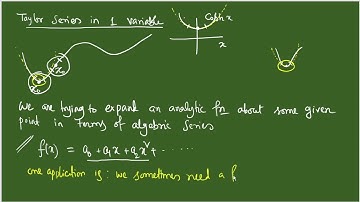 Taylor Series in 1 variable
Cosh x
x
x₀
we are trying to expand an analytic fn about some given
point in terms of algebric series
f(x) = a₀ + a₁x + a₂x² + ......
one application is : we sometimes need a